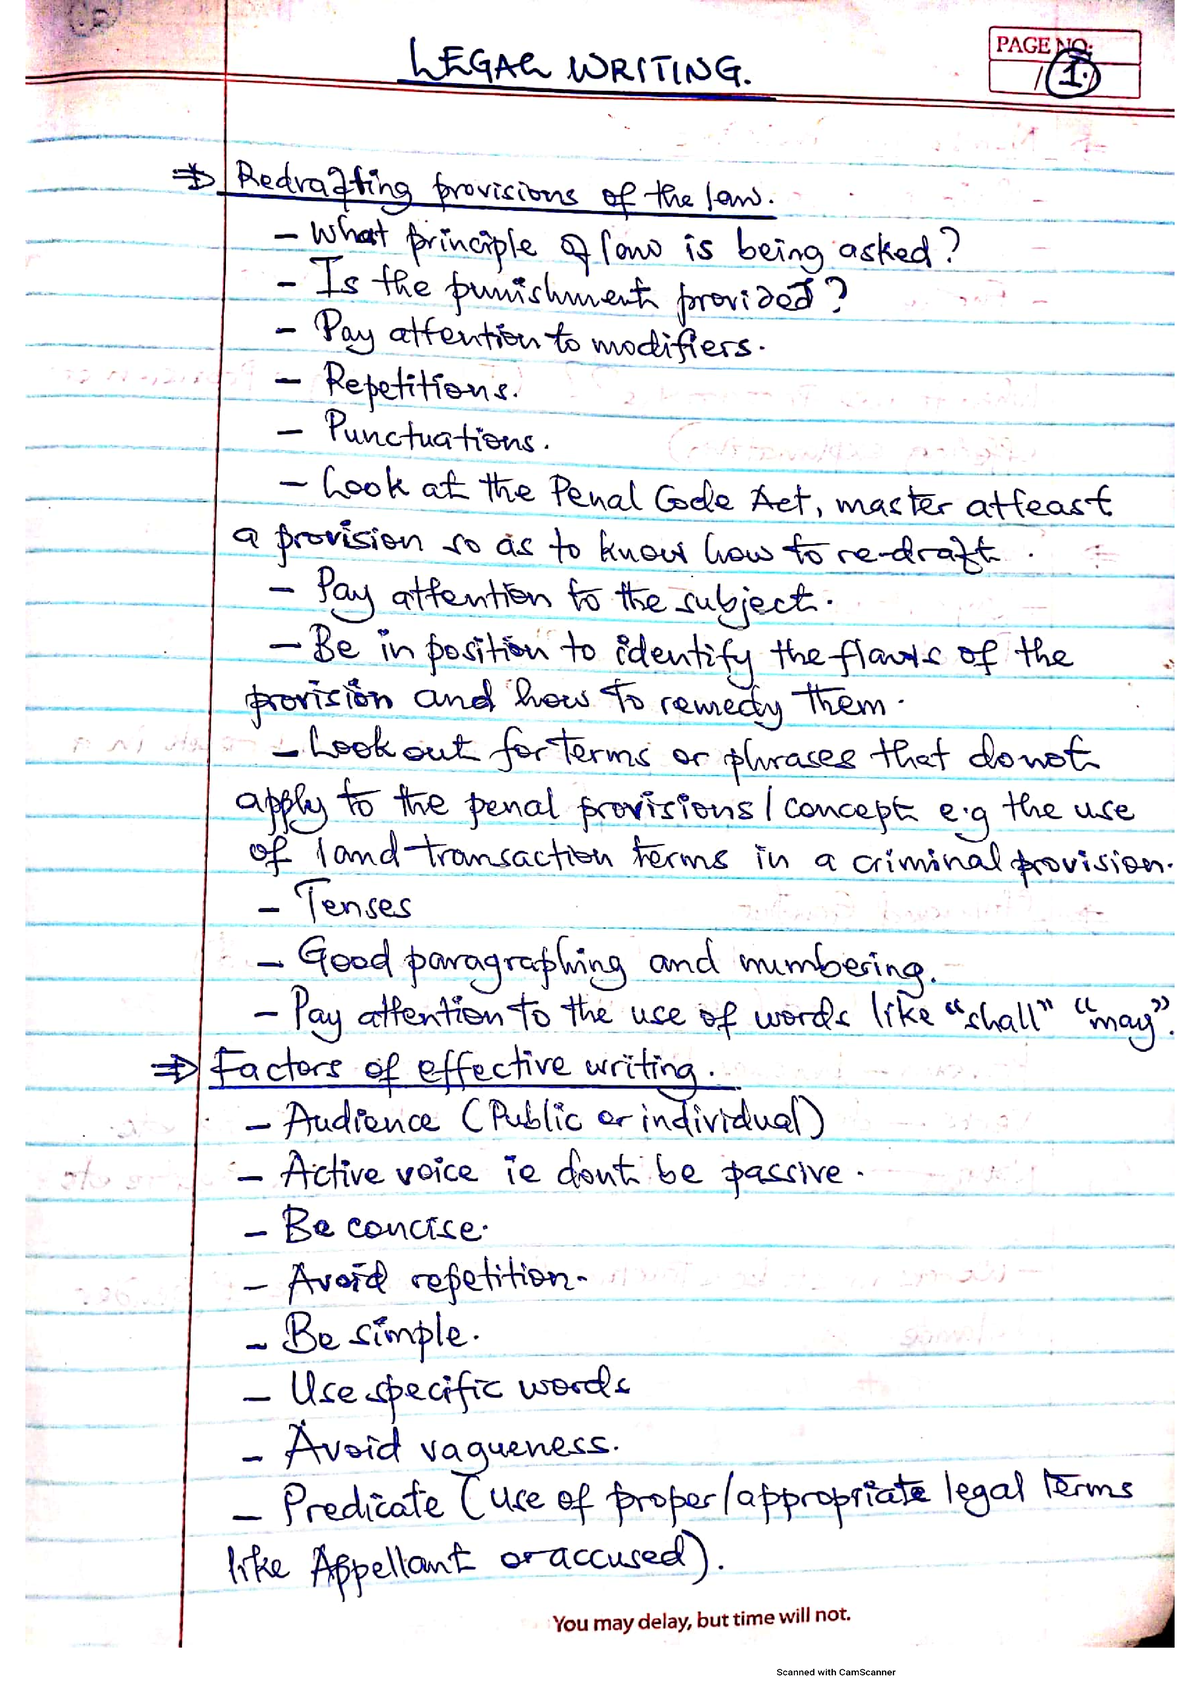 LEGAL WRITING.
PAGE NO:
/ 1.
⇒ Redrafting provisions of the law.
- What principle of law is being asked?
- Is the punishment provided?
- Pay attention to modifiers.
- Repetitions.
- Punctuations.
- Look at the Penal Code Act, master atleast
a provision so as to know how to re-draft.
- Pay attention to the subject.
- Be in position to identify the flaws of the
provision and how to remedy them.
- Look out for terms or phrases that do not
apply to the penal provisions/concept e.g the use
of land-transaction terms in a criminal provision.
- Tenses
- Good paragraphing and numbering.
- Pay attention to the use of words like "shall" "may".
⇒ Factors of effective writing.
- Audience (Public or individual)
- Active voice ie dont be passive.
- Be concise.
- Avoid repetition.
- Be simple.
- Use specific words
- Avoid vagueness.
- Predicate (use of proper/appropriate legal terms
like Appellant or accused).
You may delay, but time will not.
Scanned with CamScanner